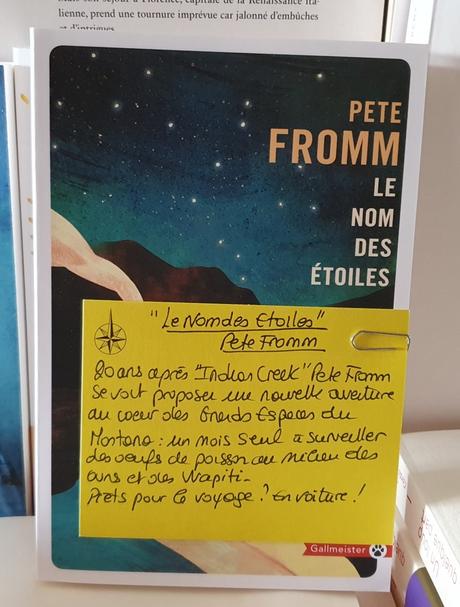 lienne, prend une tournure imprévue car jalonné d'embûches
et d'intrigues
PETE
FROMM
LE
NOM
DES
ÉTOILES
"Le Nom des Etoiles"
Pete Fromm
20 ans après "Indian Creek" Pete Fromm
se voit proposer une nouvelle aventure
au coeur des Grands Espaces du
Montana : un mois seul à surveiller
des oeufs de poisson au milieu des
ours et des Wapiti-
Prêts pour le voyage ? En voiture !
Gallmeister